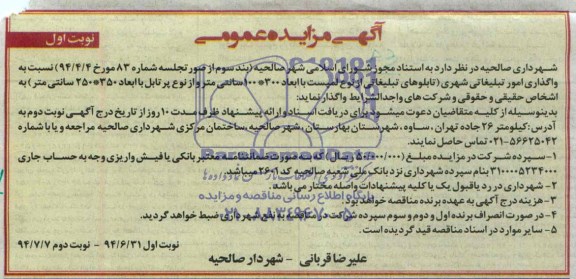 آگهی مزایده عمومی
نوبت اول
شهرداری صالحیه در نظر دارد به استناد مجوز شورای اسلامی شهر صالحیه (بند سوم از صورتجلسه شماره ۸۳ مورخ ۹۴/۴/۴) نسبت به
واگذاری امور تبلیغاتی شهری (تابلوهای تبلیغاتی از نوع با ابعاد ۳۰۰*۱۰۰ سانتی متر و از نوع پرتابل با ابعاد ۳۵۰*۲۵۰ سانتی متر) به
اشخاص حقیقی و حقوقی و شرکت های واجدالشرایط واگذار نماید:
بدینوسیله از کلیه متقاضیان دعوت میشود برای دریافت اسناد و ارائه پیشنهاد ظرف مدت ۱۰ روز از تاریخ درج آگهی نوبت دوم به
آدرس: کیلومتر ۲۶ جاده تهران - ساوه، شهرستان بهارستان، شهر صالحیه، ساختمان مرکزی شهرداری صالحیه مراجعه و یا با شماره
۰۲۱-۵۶۶۲۵۰۴۲ تماس حاصل نمایند.
۱- سپرده شرکت در مزایده مبلغ (۵۰۰۰۰/۰۰۰ ریال) که به صورت ضمانتنامه معتبر بانکی یا فیش واریزی وجه به حساب جاری
۳۱۰۰۰۰۵۲۳۴۰۰۰ بنام سپرده شهرداری نزد بانک ملی شعبه صالحیه کد ۲۶۰۱ میباشد.
۲- شهرداری در رد یا قبول یک یا کلیه پیشنهادات واصله مختار می باشد.
۳- هزینه درج آگهی به عهده برنده مناقصه خواهد بود.
۴- در صورت انصراف برنده اول و دوم و سوم سپرده شرکت در مناقصه به نفع شهرداری ضبط خواهد گردید.
۵- سایر موارد در اسناد مناقصه قید گردیده است.
نوبت اول ۹۴/۶/۳۱ - نوبت دوم ۹۴/۷/۷
علیرضا قربانی - شهردار صالحیه
پایگاه اطلاع رسانی مناقصه و مزایده